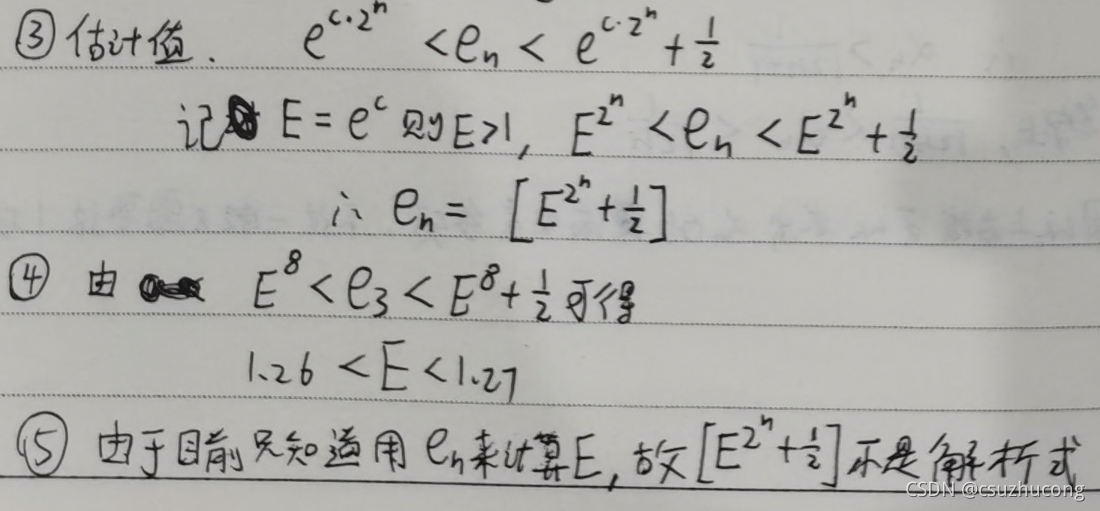 ③ 估计值. e^{c·2^n} < e_n < e^{c·2^n} + 1/2
记 E = e^c 则 E>1, E^{2^n} < e_n < E^{2^n} + 1/2
∴ e_n = [E^{2^n} + 1/2]
④ 由 E^8 < e_3 < E^8 + 1/2 可得
1.26 < E < 1.27
⑤ 由于目前只知道用 e_n 来计算E, 故[E^{2^n} + 1/2]不是解析式
CSDN @csuzhucong